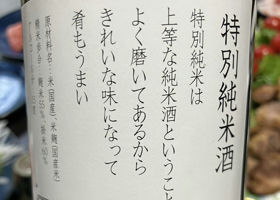 特別純米酒
特別純米は
上等な純米酒ということ
よく磨いてあるから
きれいな味になって
肴もうまい
原材料名：米(国産)、米麹(国産米)
精米歩合：麹米55％ 掛米60％